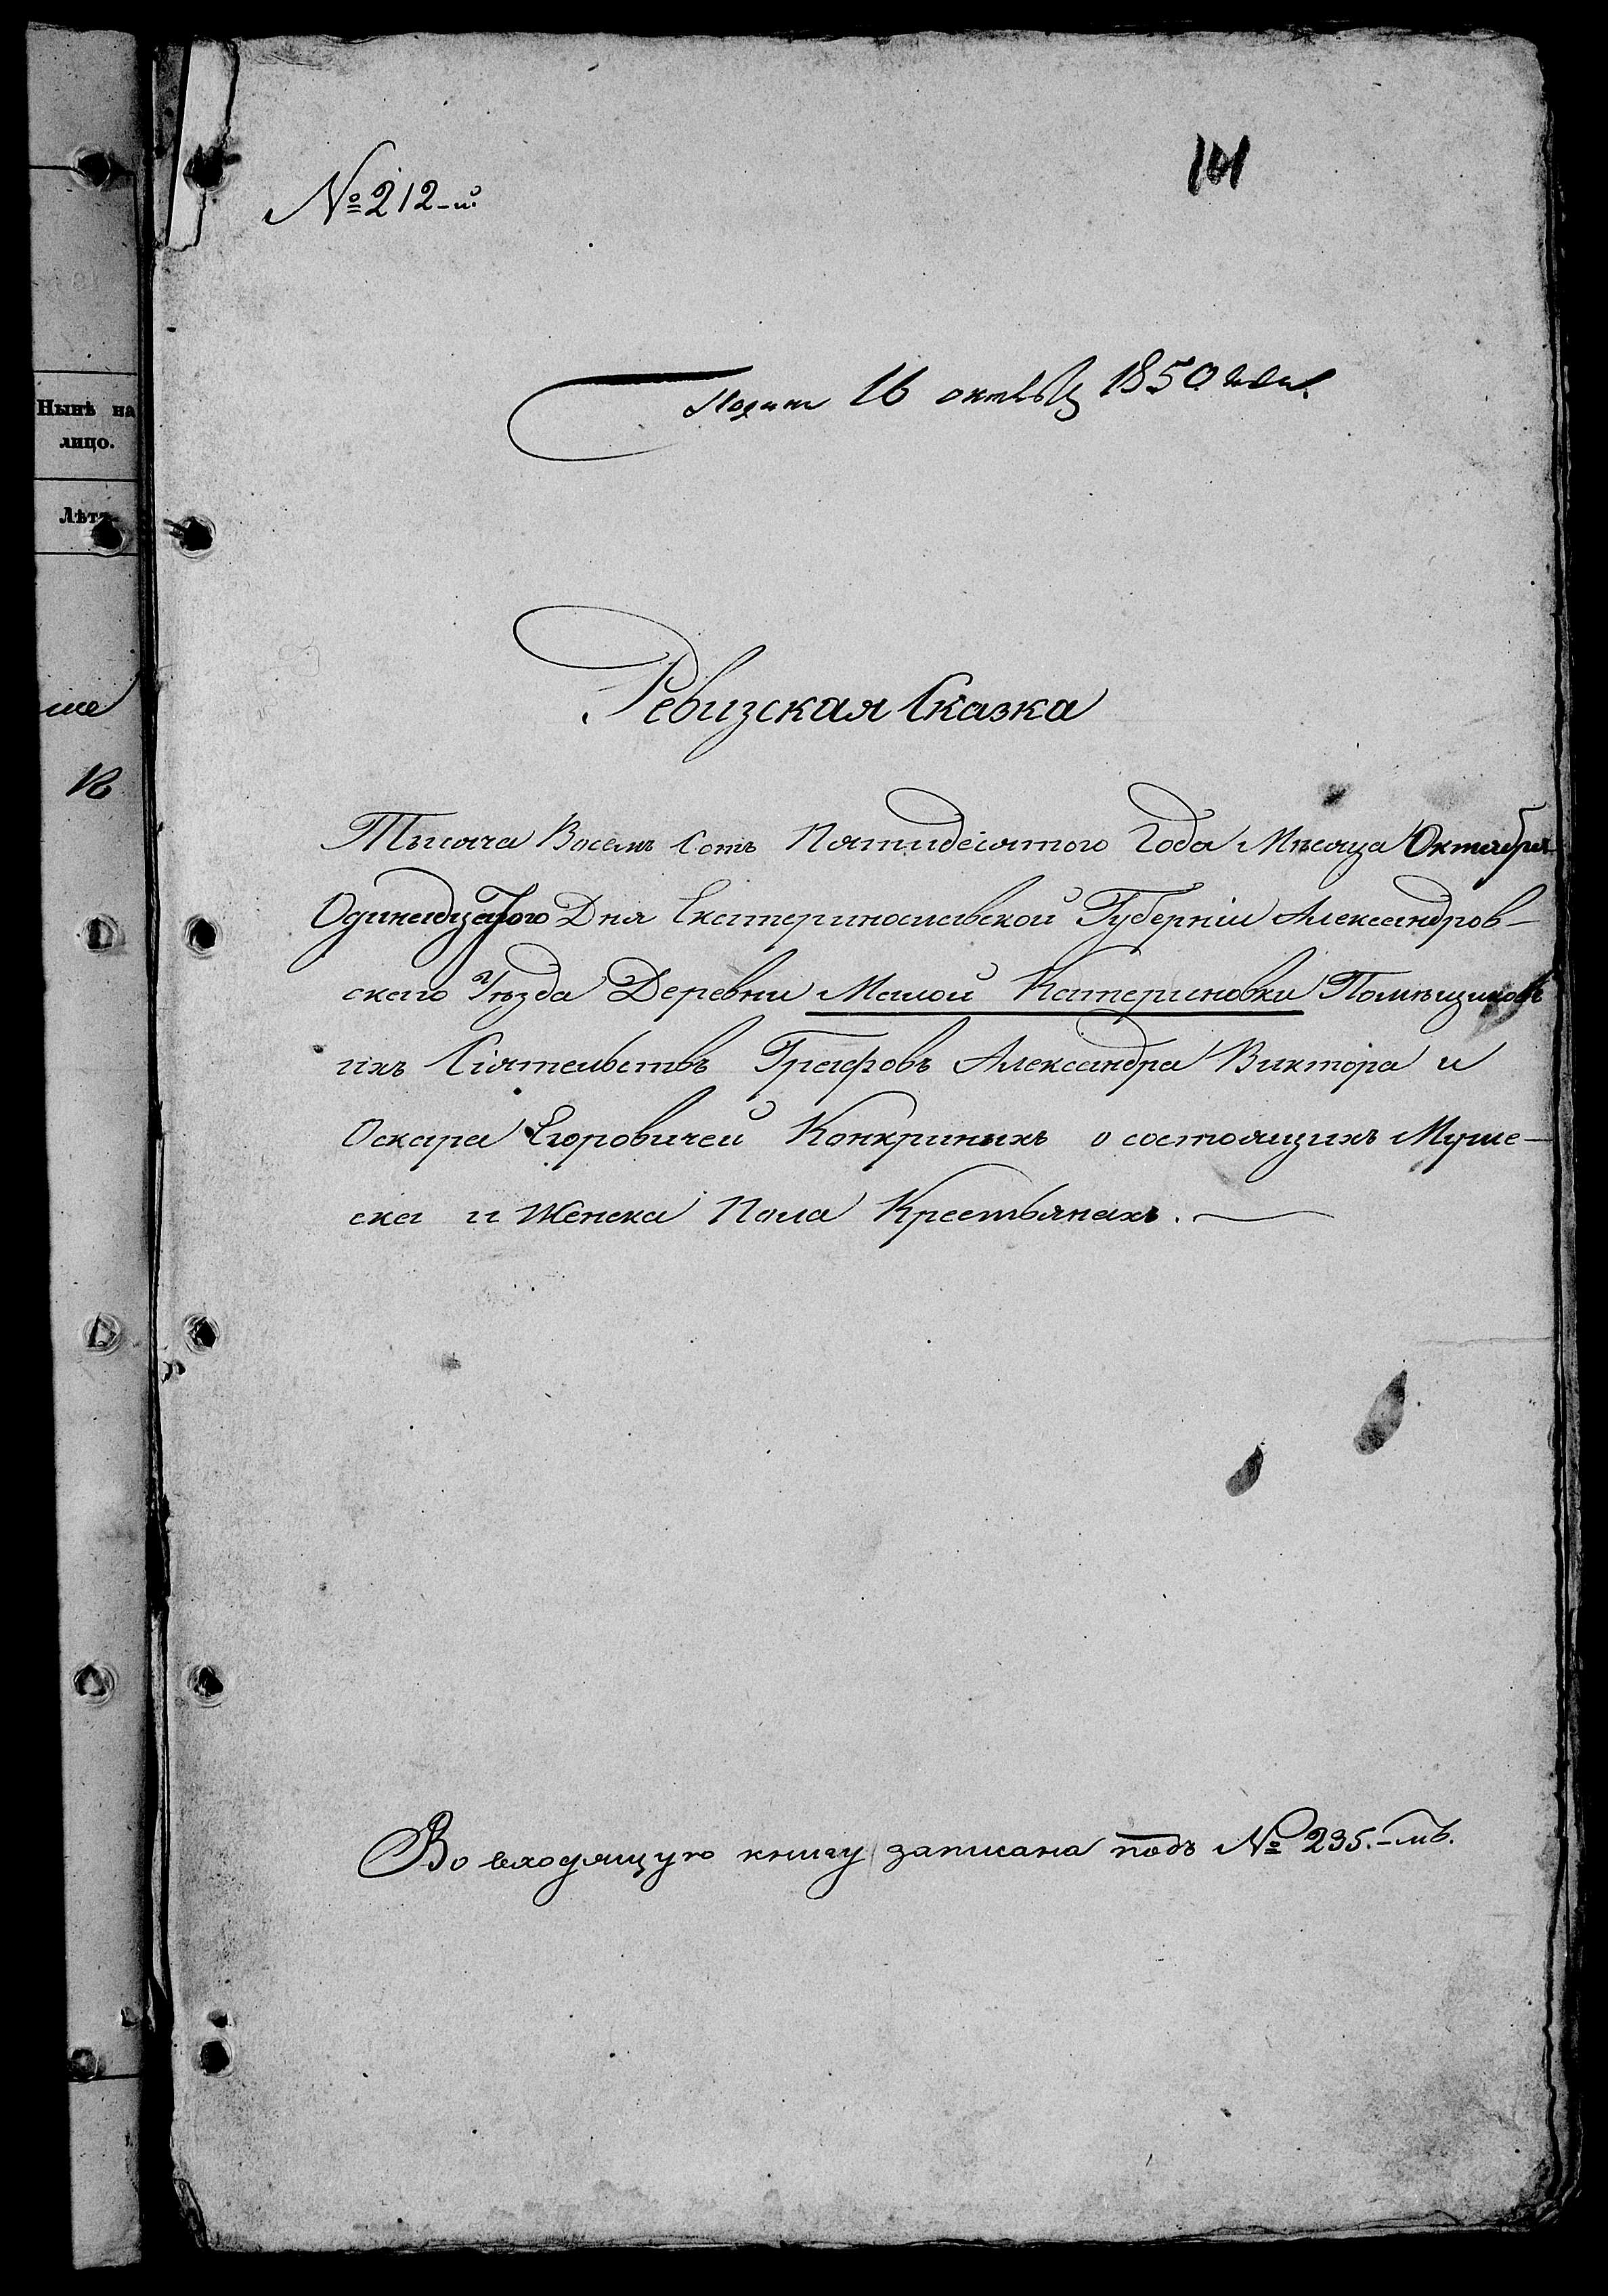 № 212-й
101
Подана 16 октября 1850 года.
Нынѣ на
лицо.
Лѣта
Ревизская Сказка
Тысяча Восемь Сотъ Пятидесятого Года Мѣсяца Октября
Одинадцатого Дня Екатериносиавской Губерніи Александров-
скаго Уѣзда Деревни Малой Катериновки Помѣщиковъ
ихъ Сіятельствъ Графовъ Александра Виктора и
Оскара Егоровичей Конкриныхъ о состоящихъ Муже-
ска и Женска Пола Крестьянахъ.
Во входящую книгу записана подъ № 235.-мъ.